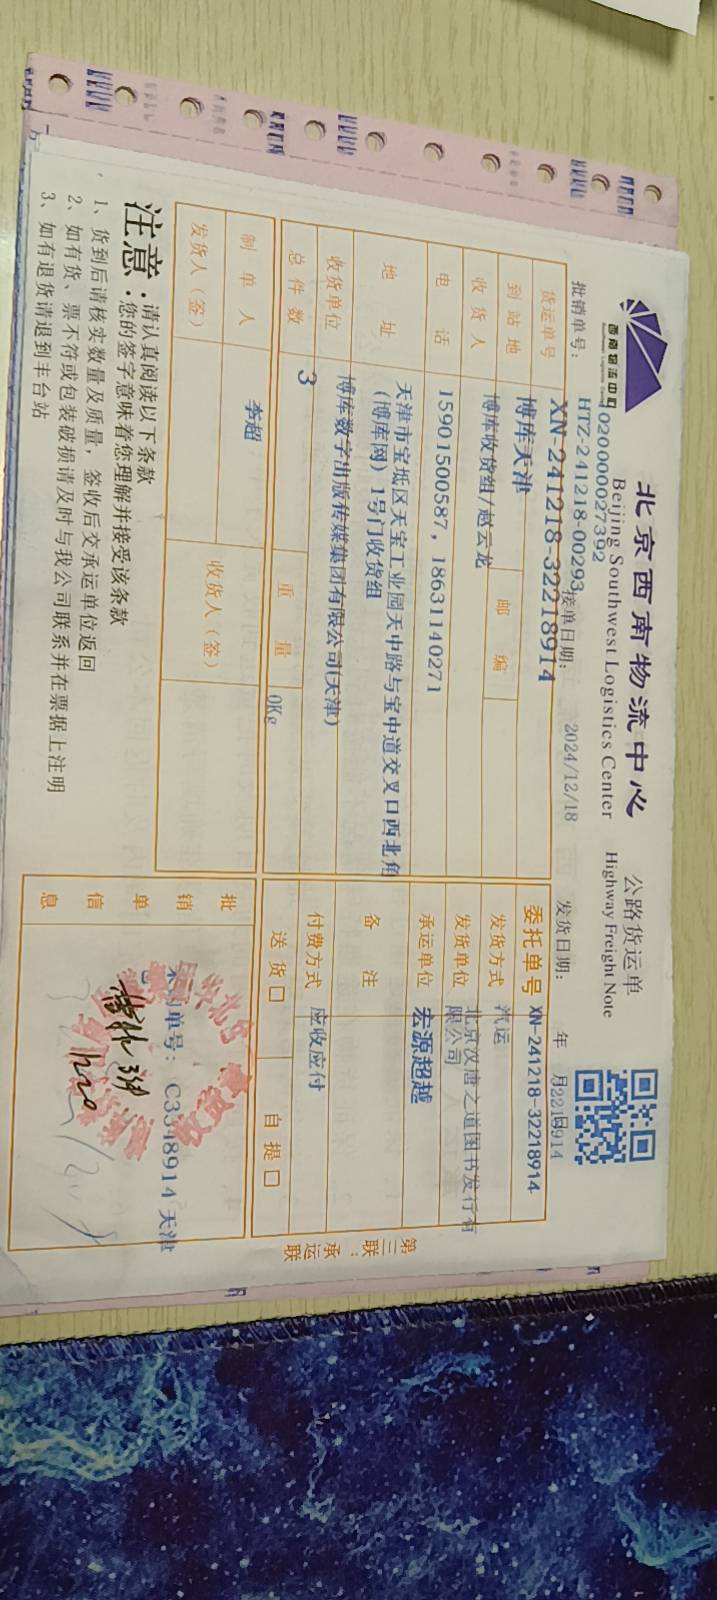 西南物流中心
北京西南物流中心
公路货运单
Beijing Southwest Logistics Center
Highway Freight Note
020000027392
批销单号:
HTZ-241218-00293
接单日期:
2024/12/18
发货日期:
年
月
货运单号
XN-241218-32218914
委托单号
XN-241218-32218914
到站地
博库天津
邮编
发货方式
汽运
收货人
博库收货组/赵云龙
发货单位
北京汉唐之道图书发行有
限公司
电话
15901500587，18631140271
承运单位
宏源超越
地址
天津市宝坻区天宝工业园天中路与宝中道交叉口西北角
(博库网) 1号门收货组
备注
收货单位
博库数字出版传媒集团有限公司(天津)
付费方式
应收应付
总件数
3
重量
0Kg
送货□
自提□
制单人
李超
收货人(签)
发货人(签)
批销单信息
单号: C3348914 天津
第三联:承运联
注意:
请认真阅读以下条款
您的签字意味着您理解并接受该条款
1、货到后请核实数量及质量，签收后交承运单位返回
2、如有货、票不符或包装破损请及时与我公司联系并在票据上注明
3、如有退货请退到丰台站